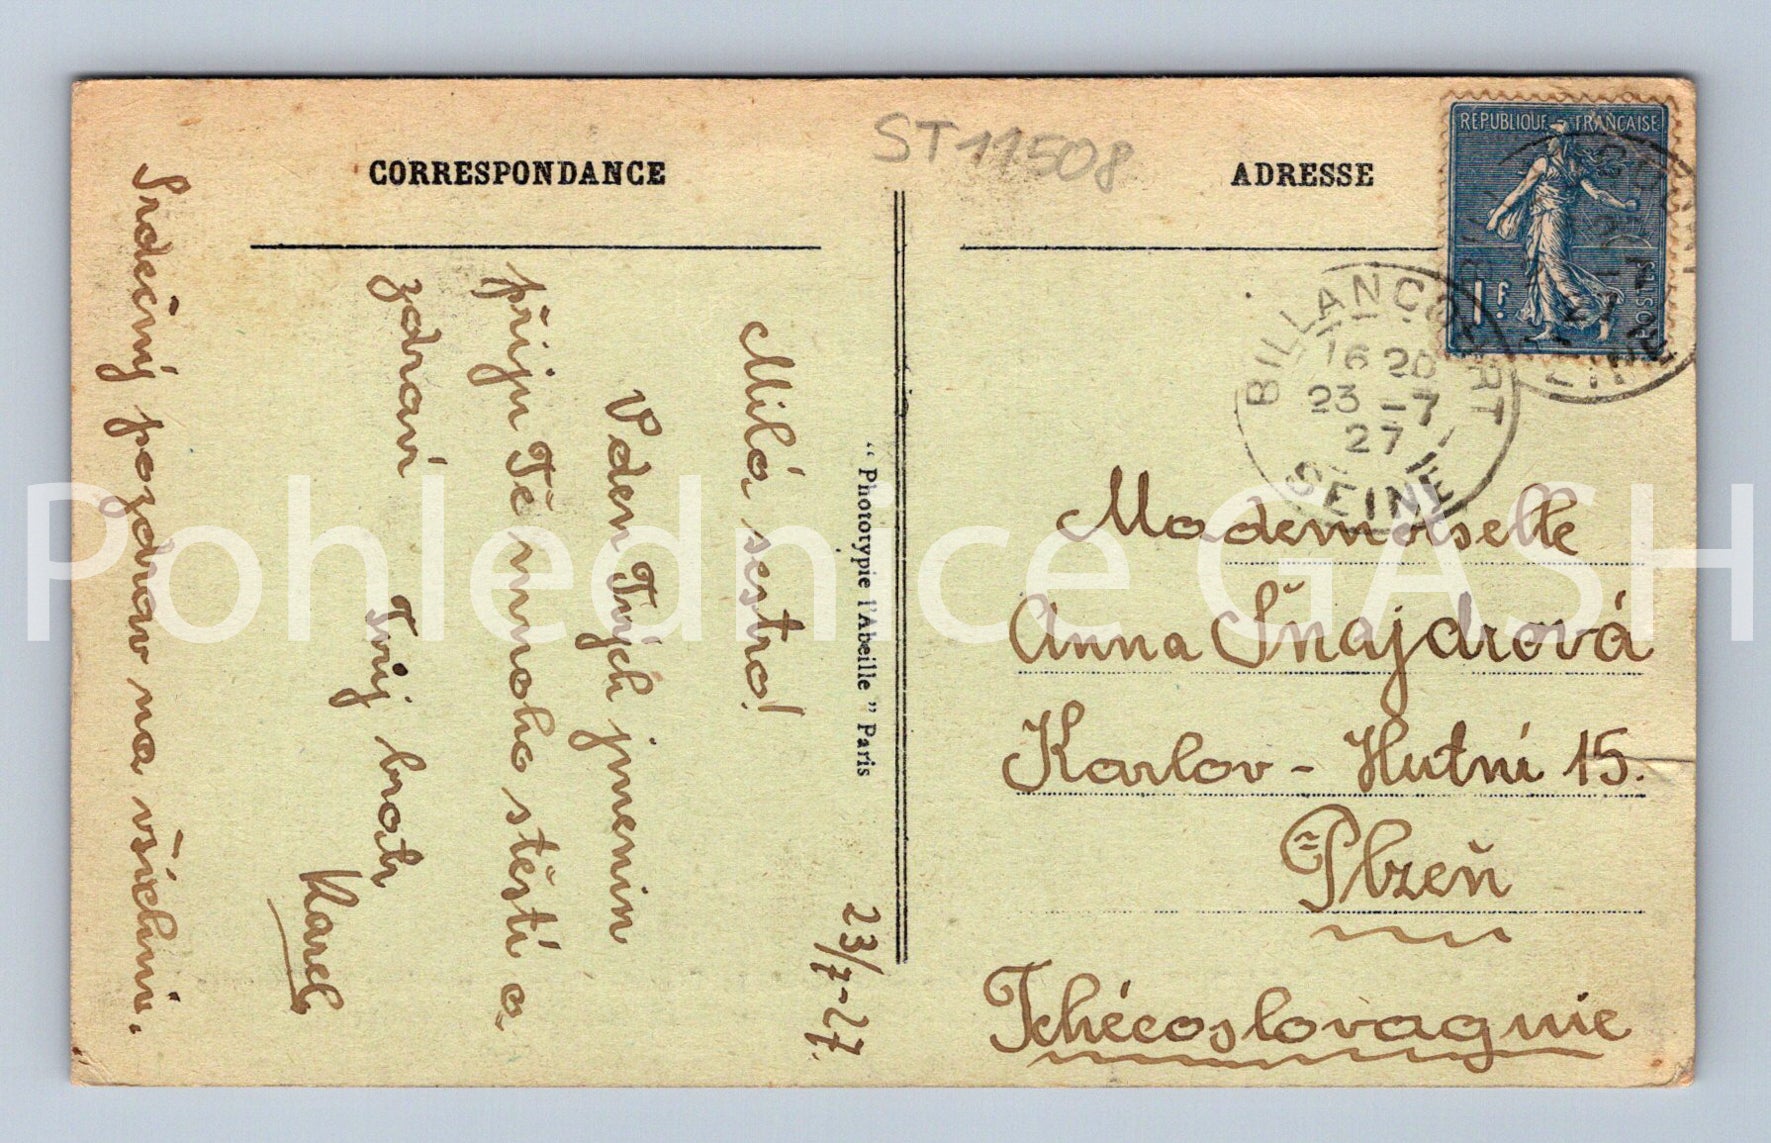 CORRESPONDANCE
ST11508
ADRESSE
REPUBLIQUE FRANÇAISE
1F.
POSTES
BILLANCOURT
16 20
23 -7
27
SEINE
23/7-27.
Milá sestro!
V den Tvých jmenin
přiju Tě mnoho štěstí a
zdraví
Tvůj bratr
Karel
Srdečný pozdrav na všechni.
"Photocypie l'Abeille" Paris
Mademoiselle
Anna Šnajdrová
Karlov - Hutní 15.
Plzeň
Tchécoslovaquie
Pohlednice GASH